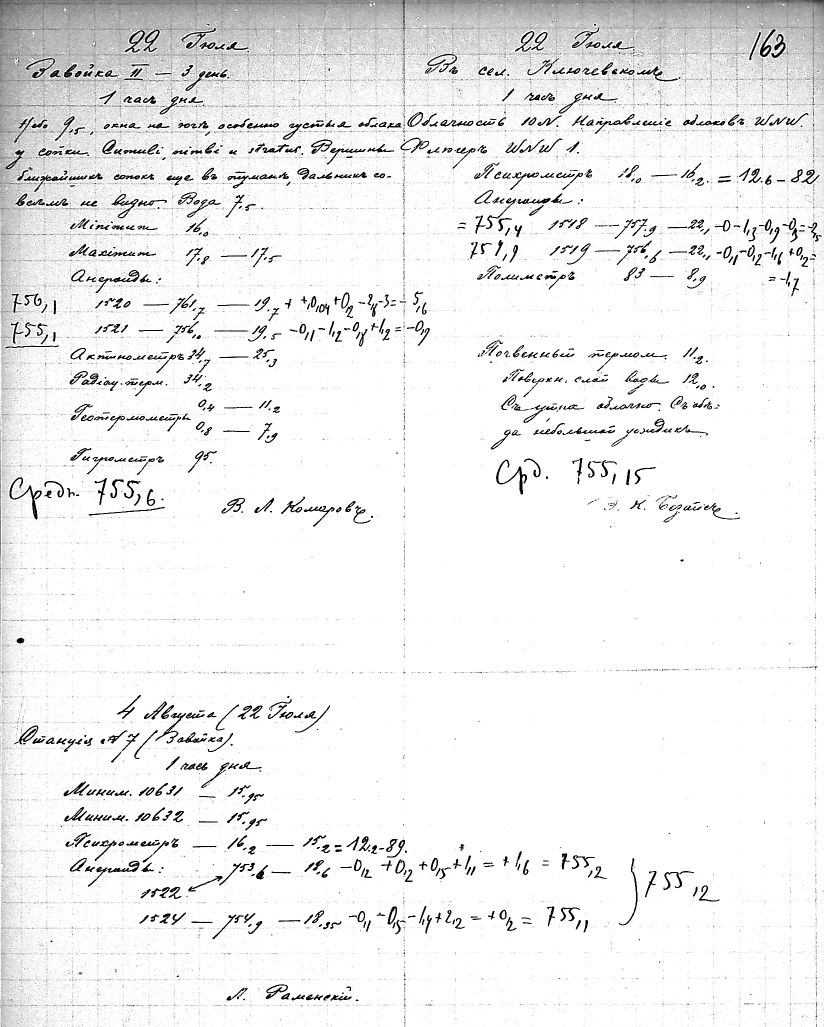 163
22 Іюля
Завойка II — 3 день.
1 часъ дня
Небо 9,5, окна на югѣ, особенно густыя облака
у сопки. Cumuli, nimbi и stratus. Вершины
ближайшихъ сопокъ еще въ туманѣ, дальнихъ со-
всѣмъ не видно. Вода 7,5.
Minimum 16,0
Maximum 17,8 — 17,5
Анероиды:
756,1 1520 — 761,7 — 19,7
755,1 1521 — 756,0 — 19,5 -0,1-1,2-0,8+1,2=-0,9
Актинометръ 34,7 — 25,3
Радіац. терм. 34,2
Геотермометры 0,4 — 11,2
0,8 — 7,9
Гигрометръ 95.
Средн. 755,6.
В. Л. Комаровъ.
22 Іюля
Въ сел. Ключевскомъ
1 часъ дня
Облачность 10N. Направленіе облаковъ WNW.
Флюгеръ WNW 1.
Психрометръ 18,0 — 16,2. = 12.6 — 82
Анероиды:
= 755,4 1518 — 757,9 — 22,1
754,9 1519 — 756,6 — 22,1 -0,1-0,2-1,6+0,2=
Полиметръ 83 — 8,9 =-1,7
Почвенный термом. 11,2.
Поверхн. слой воды 12,0.
Съ утра облачно. Съ обѣ-
да небольшой дождикъ.
Срд. 755,15
4 Августа (22 Іюля)
Станція N 7 (Завойка).
1 часъ дня.
Миним. 10631 — 15,95
Миним. 10632 — 15,95
Психрометръ — 16,2 — 15,2 = 12.2-89.
Анероиды: 753,6 — 18,6 -0,2 +0,2 +0,5 +1,1 = +1,6 = 755,2
1522
1524 — 754,9 — 18,95 -0,1-0,5-1,4+2,2 = +0,2 = 755,1
755,12
Л. Раменскій.